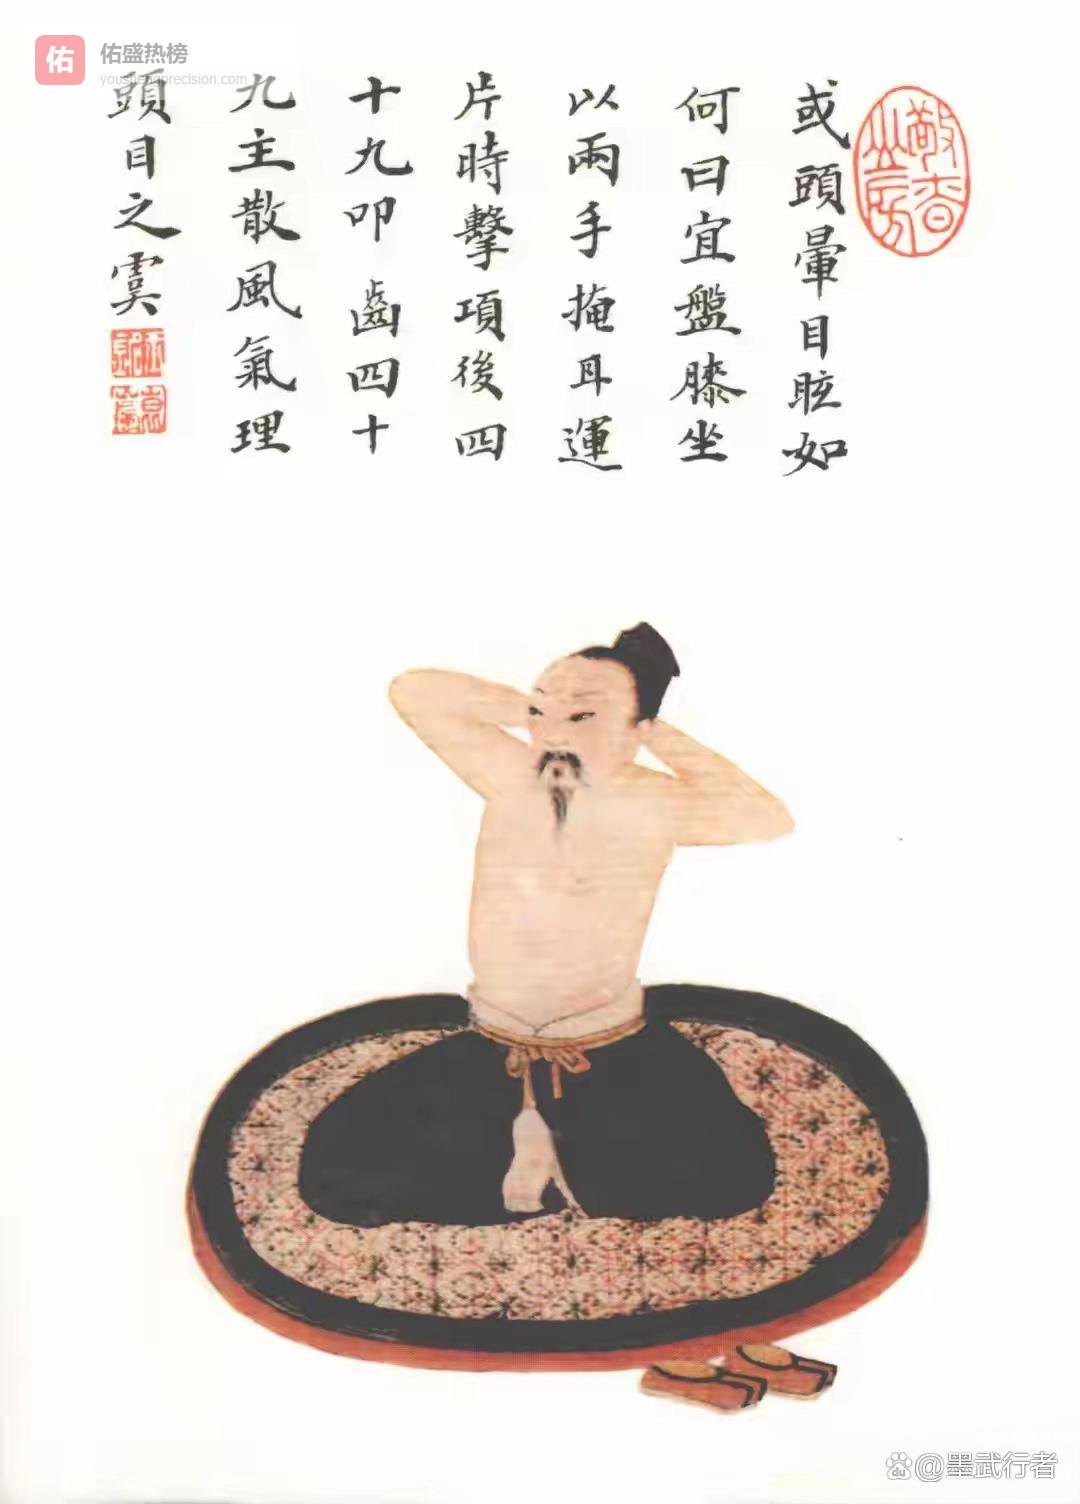 佑
佑盛热榜
youshengprecision.com
或頭暈目眩如
何曰宜盤膝坐
以兩手掩耳運
片時擊項後四
十九叩齒四十
九主散風氣理
頭目之
@墨武行者